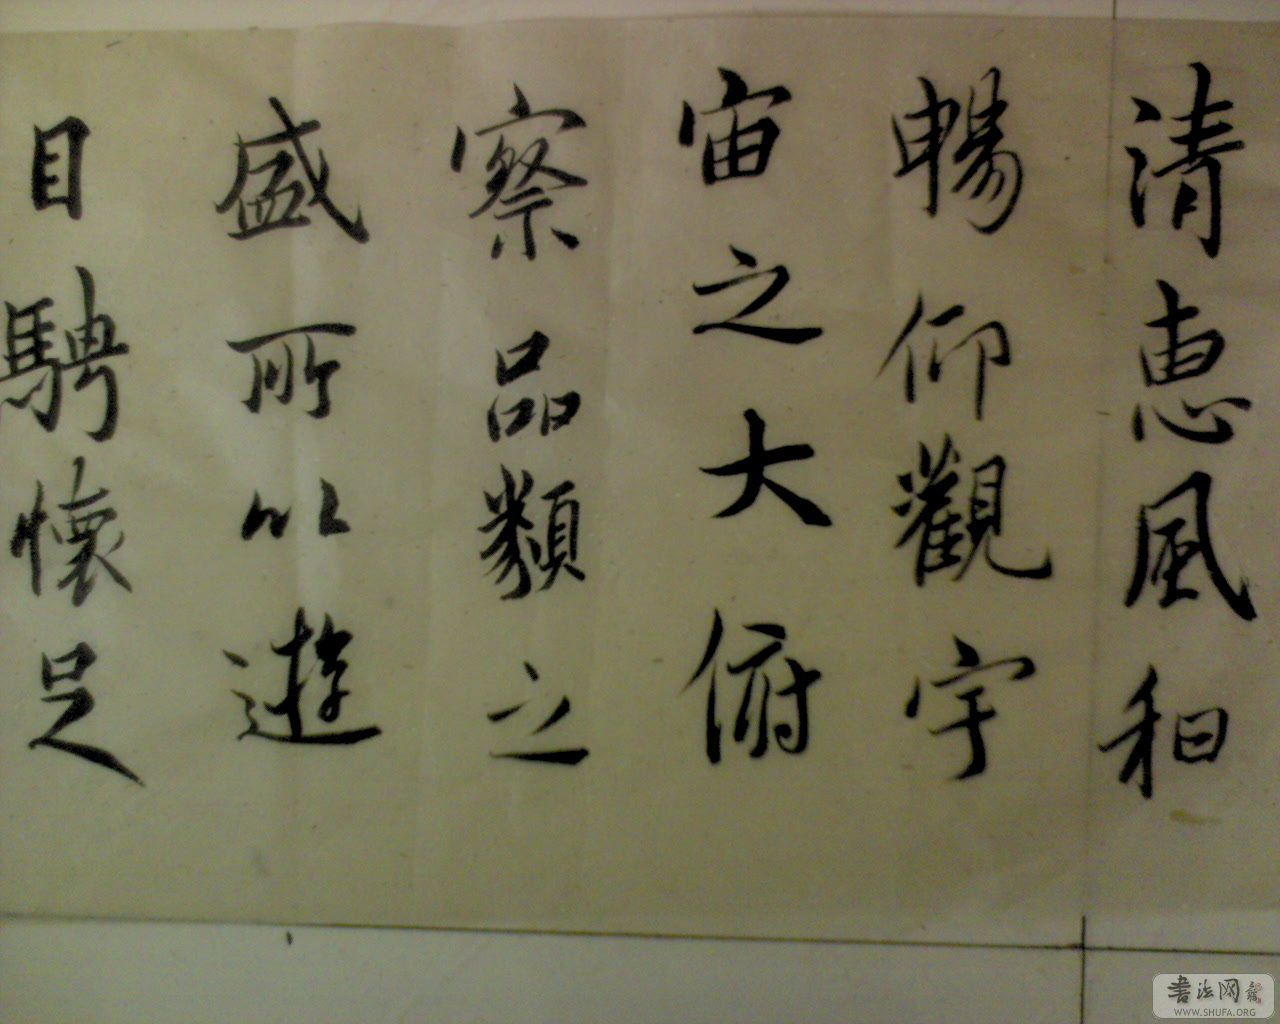 清惠風和
暢仰觀宇
宙之大俯
察品類之
盛所以遊
目騁懷足
書法网
WWW.SHUFA.ORG